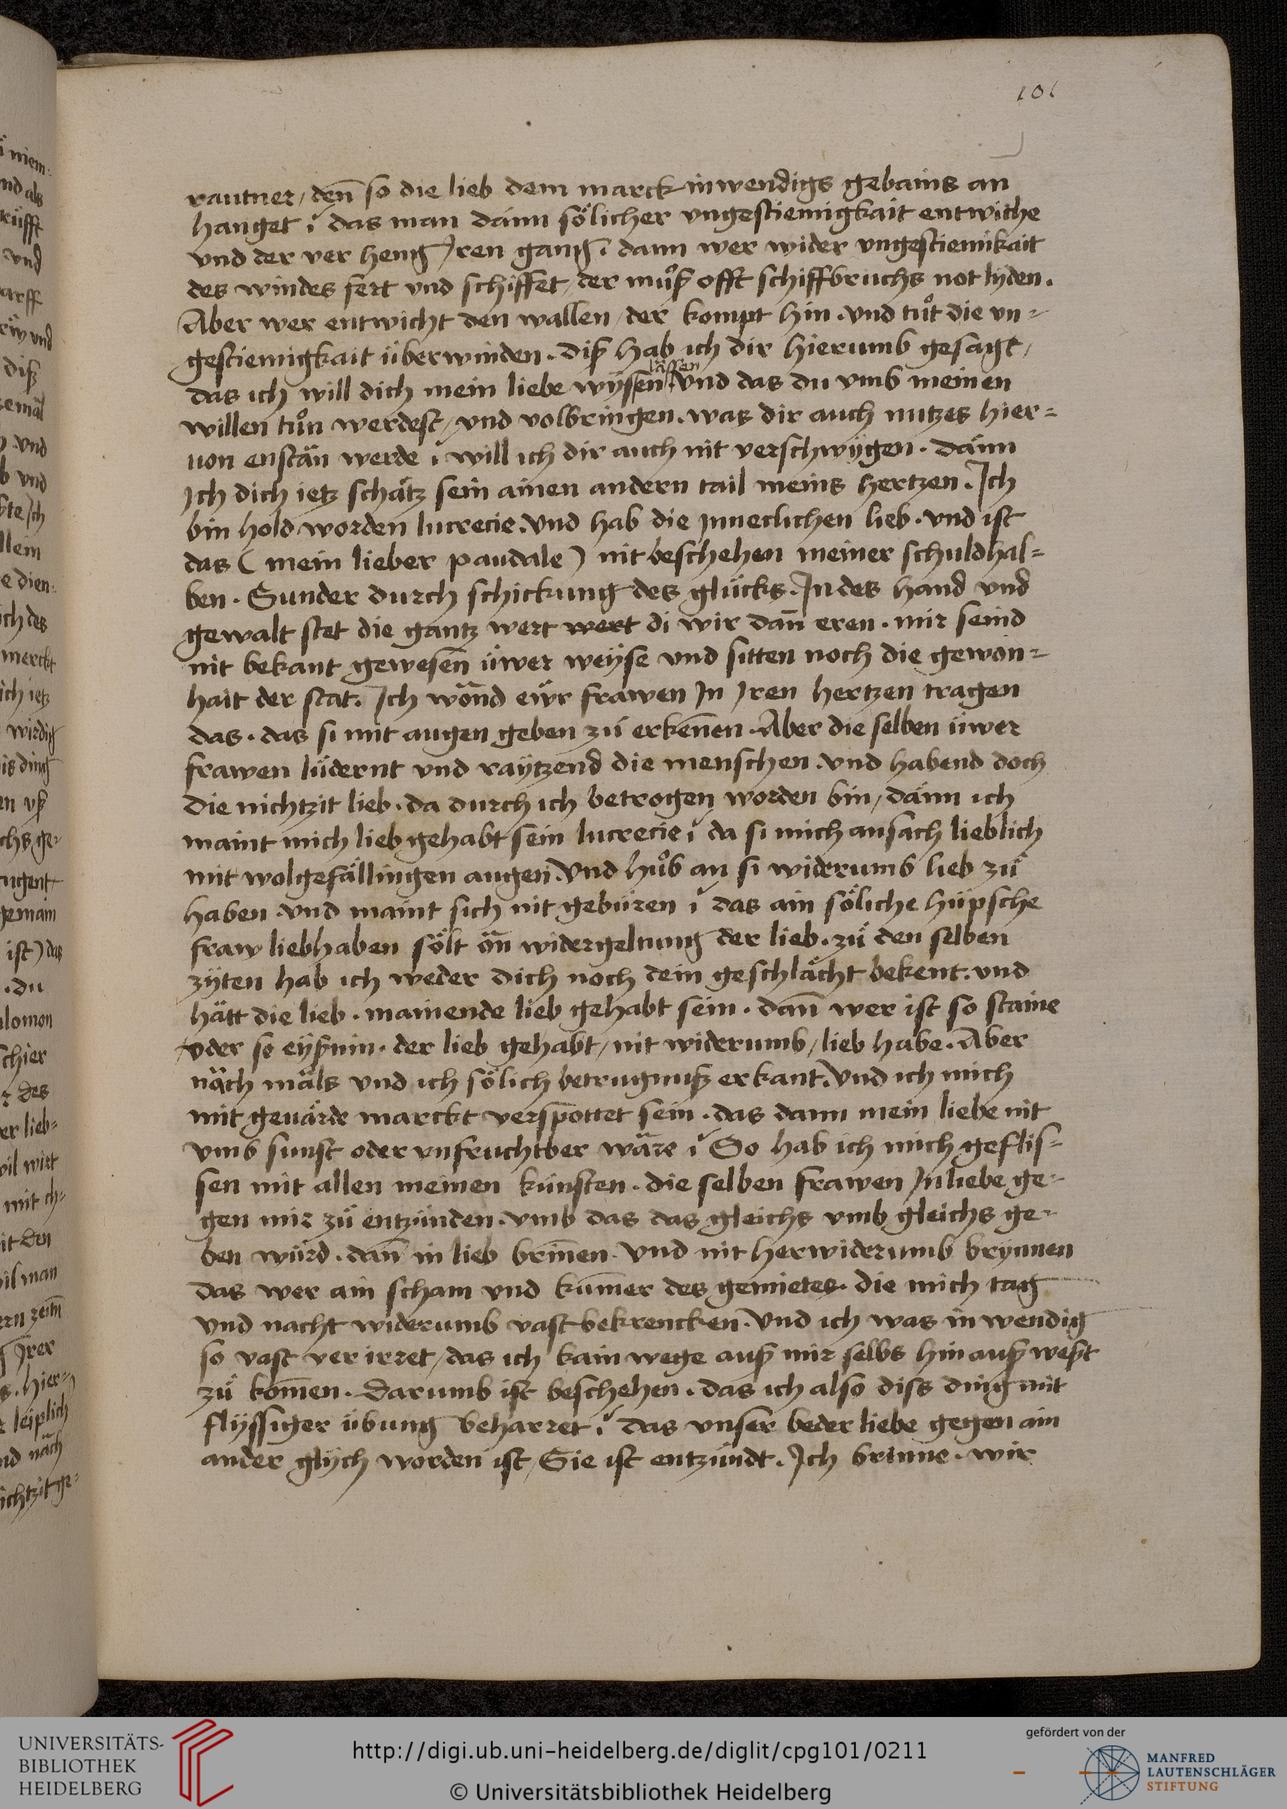 101
rautner / den̄ so die lieb dem marck inwendigs gebains an
hanget / das man dänn sölicher vngestiemigkait entwiche
vnd der ver heng Jren gang / dann wer wider vngestiemikait
des windes fert vnd schiffet / der muͦß offt schiffbruchs not lyden.
Aber wer entwicht den wallen / der kompt hin. vnd tuͦt die vn-
gestiemigkait überwinden. diß hab ich dir hierumb gesagt /
das ich will dich mein liebe wyssen laͮssen vnd das du vmb meinen
willen tuͦn werdest / vnd volbringen. was dir auch nutzes hier-
uon enstän werde / will ich dir auch nit verschwygen. dänn
Ich dich ietz schätz sein ainen andern tail meins hertzen. Ich
bin hold worden lucrecie. vnd hab die Innerlichen lieb. vnd ist
das ( mein lieber pandale ) nit beschehen meiner schuldhal-
ben. Sunder durch schickung des glücks. In des hand vnd
gewalt stet die gantz wert wert di wir dan̄ eren. mir seind
nit bekant gewesen üwer weyse vnd sitten noch die gewon-
hait der stat. Ich wönd ewr frawen In Jren hertzen tragen
das. das si mit augen geben zü erken̄en. Aber die selben üwer
frawen lüdernt vnd raytzend die menschen. vnd habend doch
die nichtzit lieb. da durch ich betrogen worden bin / dänn ich
maint mich lieb gehabt sein lucrecie / da si mich ansach lieblich
mit wolgefällingen augen. vnd huͦb an si widerumb lieb zü
haben. vnd maint sich nit gebüren / das ain söliche hüpsche
fraw liebhaben sölt ön widergeltnung der lieb. zü den selben
zyten hab ich weder dich noch dein geschlächt bekent. vnd
hätt die lieb. mainende lieb gehabt sein. dan̄ wer ist so staine
oder so eyßnin. der lieb gehabt / nit widerumb / lieb habe. Aber
näch mäls vnd ich sölich betrugnuß erkant. vnd ich mich
mit geuärde marckt verspottet sein. das dann mein liebe nit
vmb sunst oder vnfruchtber wäre / So hab ich mich geflis-
sen mit allen meinen künsten. die selben frawen In liebe ge-
gen mir zü entzünden. vmb das das gleichs vmb gleichs ge-
ben würd. dan̄ in lieb brin̄en. vnd nit herwiderumb brynnen
das wer ain scham vnd kum̄er des gemietes. die mich tag
vnd nacht widerumb vast bekrencken. vnd ich was in wendig
so vast ver irret / das ich kain wege auß mir selbs hin auß weßt
zü kom̄en. Darumb ist beschehen. das ich also diss ding mit
flyssiger übung beharret / das vnser beder liebe gegen ain
ander glych worden ist / Sie ist entzündt. Ich brinne. wir
UNIVERSITÄTS-
BIBLIOTHEK
HEIDELBERG
http://digi.ub.uni-heidelberg.de/diglit/cpg101/0211
© Universitätsbibliothek Heidelberg
gefördert von der
MANFRED
LAUTENSCHLÄGER
STIFTUNG